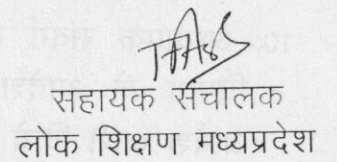 सहायक संचालक
लोक शिक्षण मध्यप्रदेश